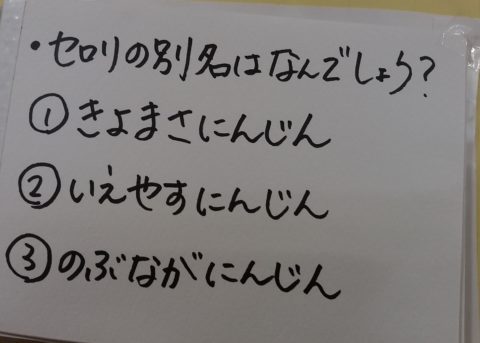 ・セロリの別名はなんでしょう?
①きよまさにんじん
②いえやすにんじん
③のぶながにんじん